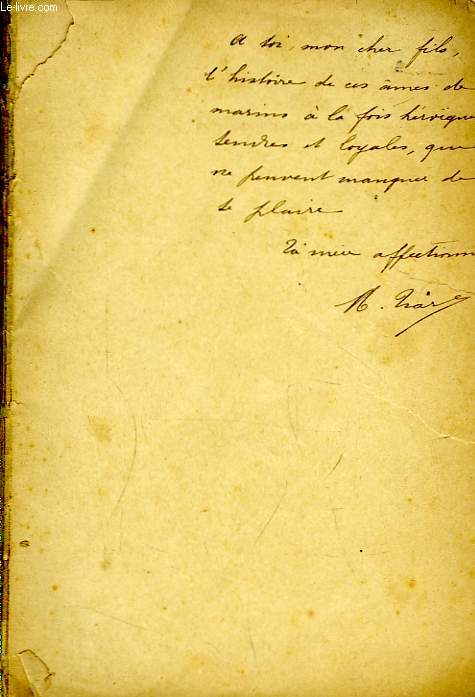 Le-livre.com
A toi, mon cher fils,
l'histoire de ces âmes de
marins à la fois héroïque
tendres et loyales, qui
ne peuvent manquer de
te plaire
Ta mère affectionn